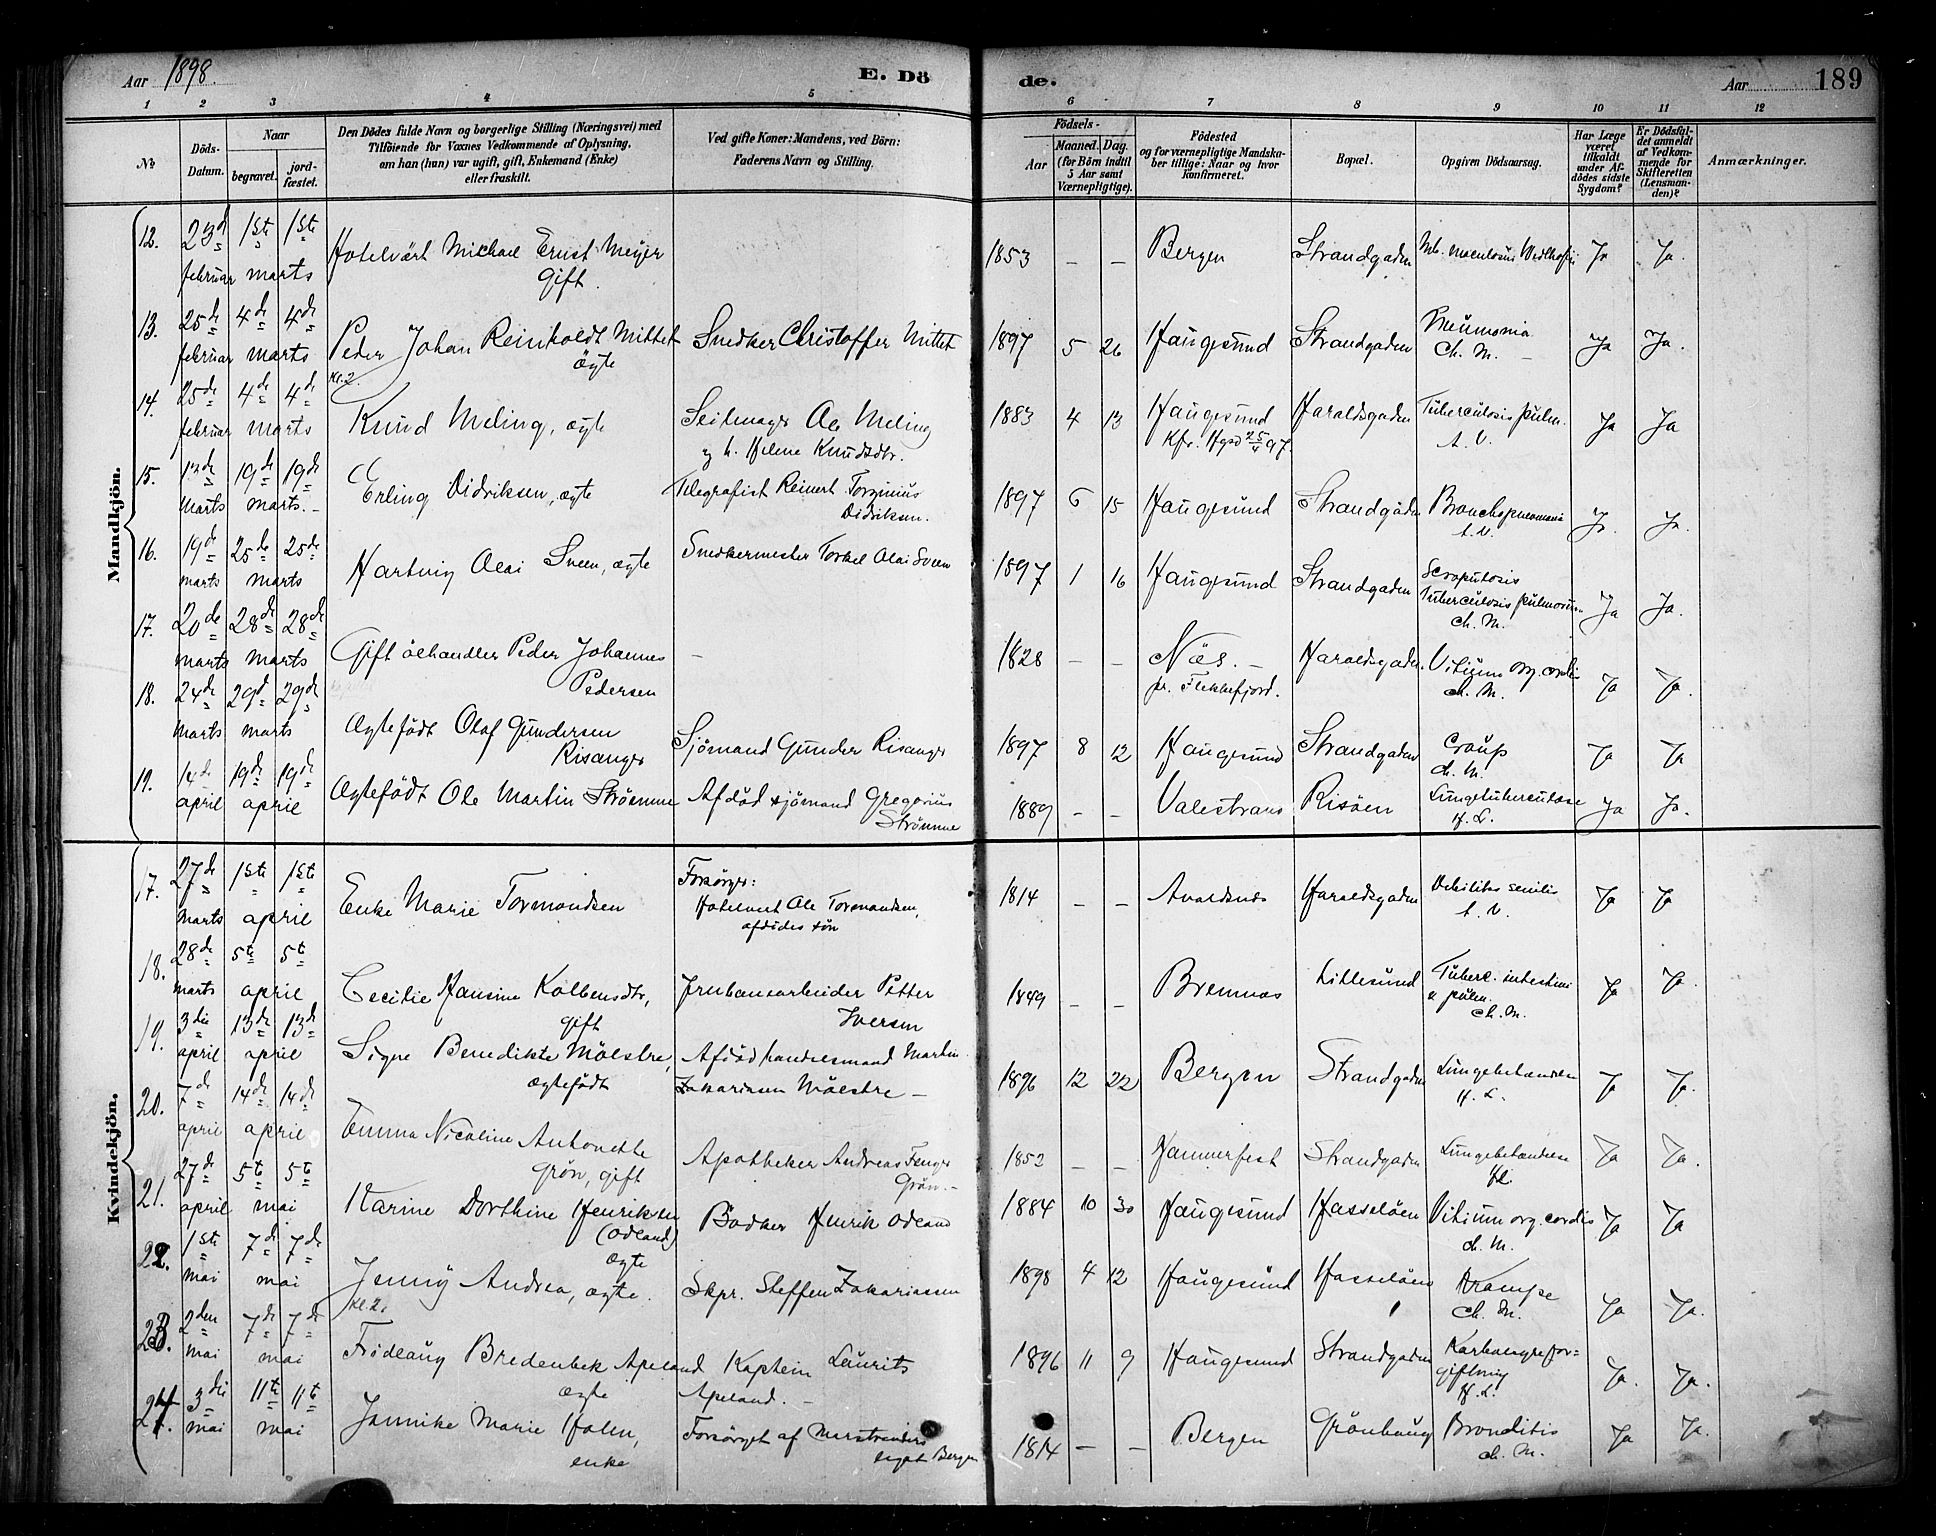 Aar 1898.
E. Döde.
Aar
189
1 2 3 4 5 6 7 8 9 10 11 12
No
Döds-Datum.
Naar
begravet.
jord-fæstet.
Den Dödes fulde Navn og borgerlige Stilling (Næringsvei) med
Tilföiende for Voxnes Vedkommende af Oplysning,
om han (hun) var ugift, gift, Enkemand (Enke)
eller fraskilt.
Ved gifte Koner: Mandens, ved Börn:
Faderens Navn og Stilling.
Födsels-
Aar
Maaned. Dag.
(for Börn indtil
5 Aar samt
Værnepligtige).
Födested
og for værnepligtige Mandska-
ber tillige: Naar og hvor
konfirmeret.
Bopæl.
Opgiven Dödsaarsag.
Har Læge
været
tilkaldt
under Af-
dödes sidste
Sygdom?
Er Dödsfal-
det anmeldt
af Vedkom-
mende for
Skifteretten
(Lensman-
den)?
Anmærkninger.
Mandkjön.
12. 23d februar 1ste 1ste marts Hotelvärt Michael Ernst Meyer Gift. 1853 – – Bergen Strandgaden Mb. maculosus Werlhofii Ja Ja.
13. 25de februar 4de 4de marts Peder Johan Reinholdt Mittet ägte Snedker Christoffer Mittet 1897 5 26 Haugesund Strandgaden Pneumonia Ch. M. – Ja Ja.
14. 25de februar 4de 4de marts Kl. 2. Knud Meling, ægte Seilmager Ole Meling og h. Helene Knudsdtr. 1883 4 13 Haugesund Kfr. Hgsd 25/4 97. Haraldsgaden Tuberculosis pulm. Ja Ja
15. 13de Marts 19de 19de marts. – Erling Didriksen, ægte Telegrafist Reinert Torginius Didriksen. 1897 6 15 Haugesund Strandgaden Bronchopneumonia Ja. Ja.
16. 19de marts 25de 25de marts Hartvig Olai Sveen, ægte Snedkermester Torkel Olai Sveen 1897 1 16 Haugesund Strandgaden Tuberculosis pulmonum Ch. M. Ja Ja.
17. 20de marts 28de 28de marts Gift ölhandler Peder Johannes Pedersen – 1828 – – Näs. – pr. Flekkefjord. Haraldsgaden. Vitium org. cordis ch. M. Ja Ja.
18. 24de Marts 29d 29de marts Ægtefödt Olaf Gundersen Risanger Sjömand Gunder Risanger 1897 8 12 Haugesund Strandgaden Croup ch. M. Ja Ja
19. 14de april 19de 19de april Ægtefödt Ole Martin Strömme Afdöd sjömand Gregorius Strömme 1889 – – Valestrand Risöen Lungetuberculose H. L. Ja Ja.
Kvindekjön.
17. 27de Marts 1ste 1ste april Enke Marie Tormondsen Forsörger: Hotelvert Ole Tormondsen, afdödes sön 1814 – – Avaldsnes Haraldsgaden Debilitas senilis Ja Ja
18. 28de marts 5te 5te april Cecilie Hansine Kolbensdtr, gift Jernbanearbeider Petter Iversen 1849 – – Bremnæs Lillesund Tuberc. intestini & pulm. Ch. M. Ja Ja.
19. 3die april 13de 13de april Signe Benedikte Mölstre, ægtefödt Afdöd handelsmand Martin Zakariasen Mölstre – 1896 12 22 Bergen Strandgaden Lungebetændelse H. L. Ja Ja.
20. 7de april 14de 14de april Emma Nicoline Antonette Grön, gift Apotheker Andreas Fenger Grön. – 1852 – – Hammerfest Strandgaden Lungebetændelse HL. Ja Ja.
21. 27de april 5te 5te mai Karine Dorthine Henriksen (Odland) ægte Bödker Henrik Odland 1884 10 30 Haugesund Hasselöen Vitium org. cordis ch. M. Ja Ja
22. 1ste mai 7de 7de mai Jenny Andrea, ægte. Skpr. Steffen Zakariassen 1898 4 12 Haugesund Hasselöen Krampe Ch. M. Ja Ja.
23. 2den mai 7de 7de mai Kl. 2. Fridlaug Bredenbek Apeland ægte Kaptein Laurits Apeland. – 1896 11 9 Haugesund Strandgaden Karbolsyrefor-giftning H. L. Ja. Ja.
24. 3die mai 11te 11te mai Jannike Marie Holm, enke Forsörget af Marstranders legat Bergen 1814 – – Bergen Grönhaug Bronchitis ch. M. Ja Ja.